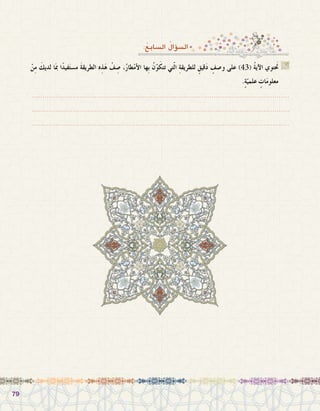 السؤال السابع
تَحْتَوي الآيةُ (43) على وصفٍ دَقيقٍ للطريقة التي تتكَوَّنُ بها الأَمْطارُ، صِفْ هَذِهِ الطريقة مستفيدًا مِمَّا لديكَ مِنْ
معلوماتٍ علميَّةٍ.
79